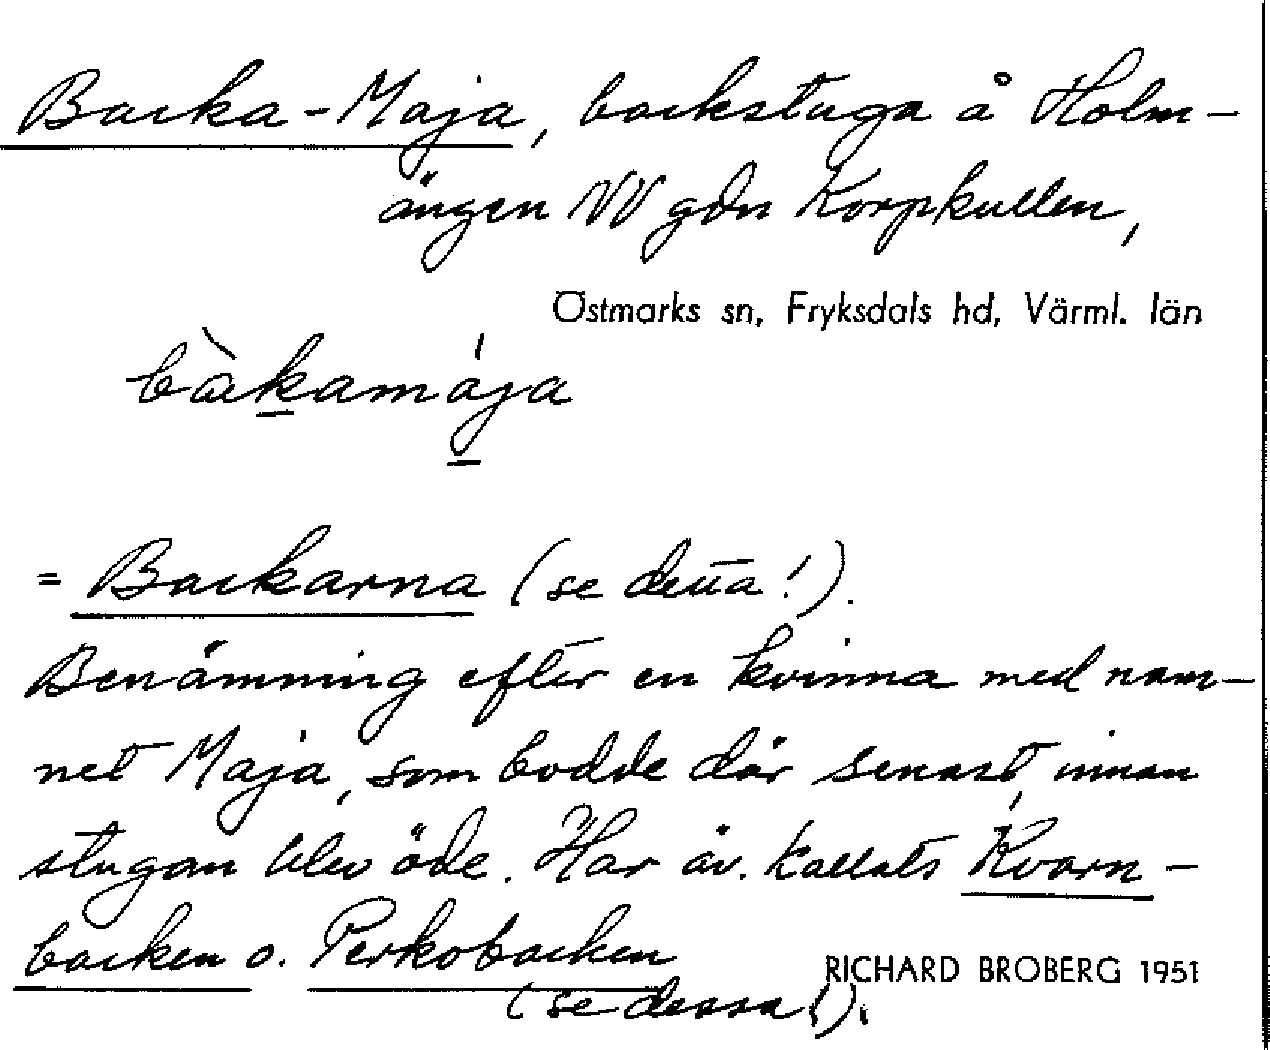 Backa-Maja, backstuga å Holm-
ängen NV gdn Korpkullen,
Östmarks sn, Fryksdals hd, Värml. län
bàkamája
= Backarna (se detta!).
Benämning efter en kvinna med nam-
net Maja, som bodde där senast, innan
stugan blev öde. Har äv. kallats Kvarn-
backen o. Perkobacken
RICHARD BROBERG 1951
(se dessa!).